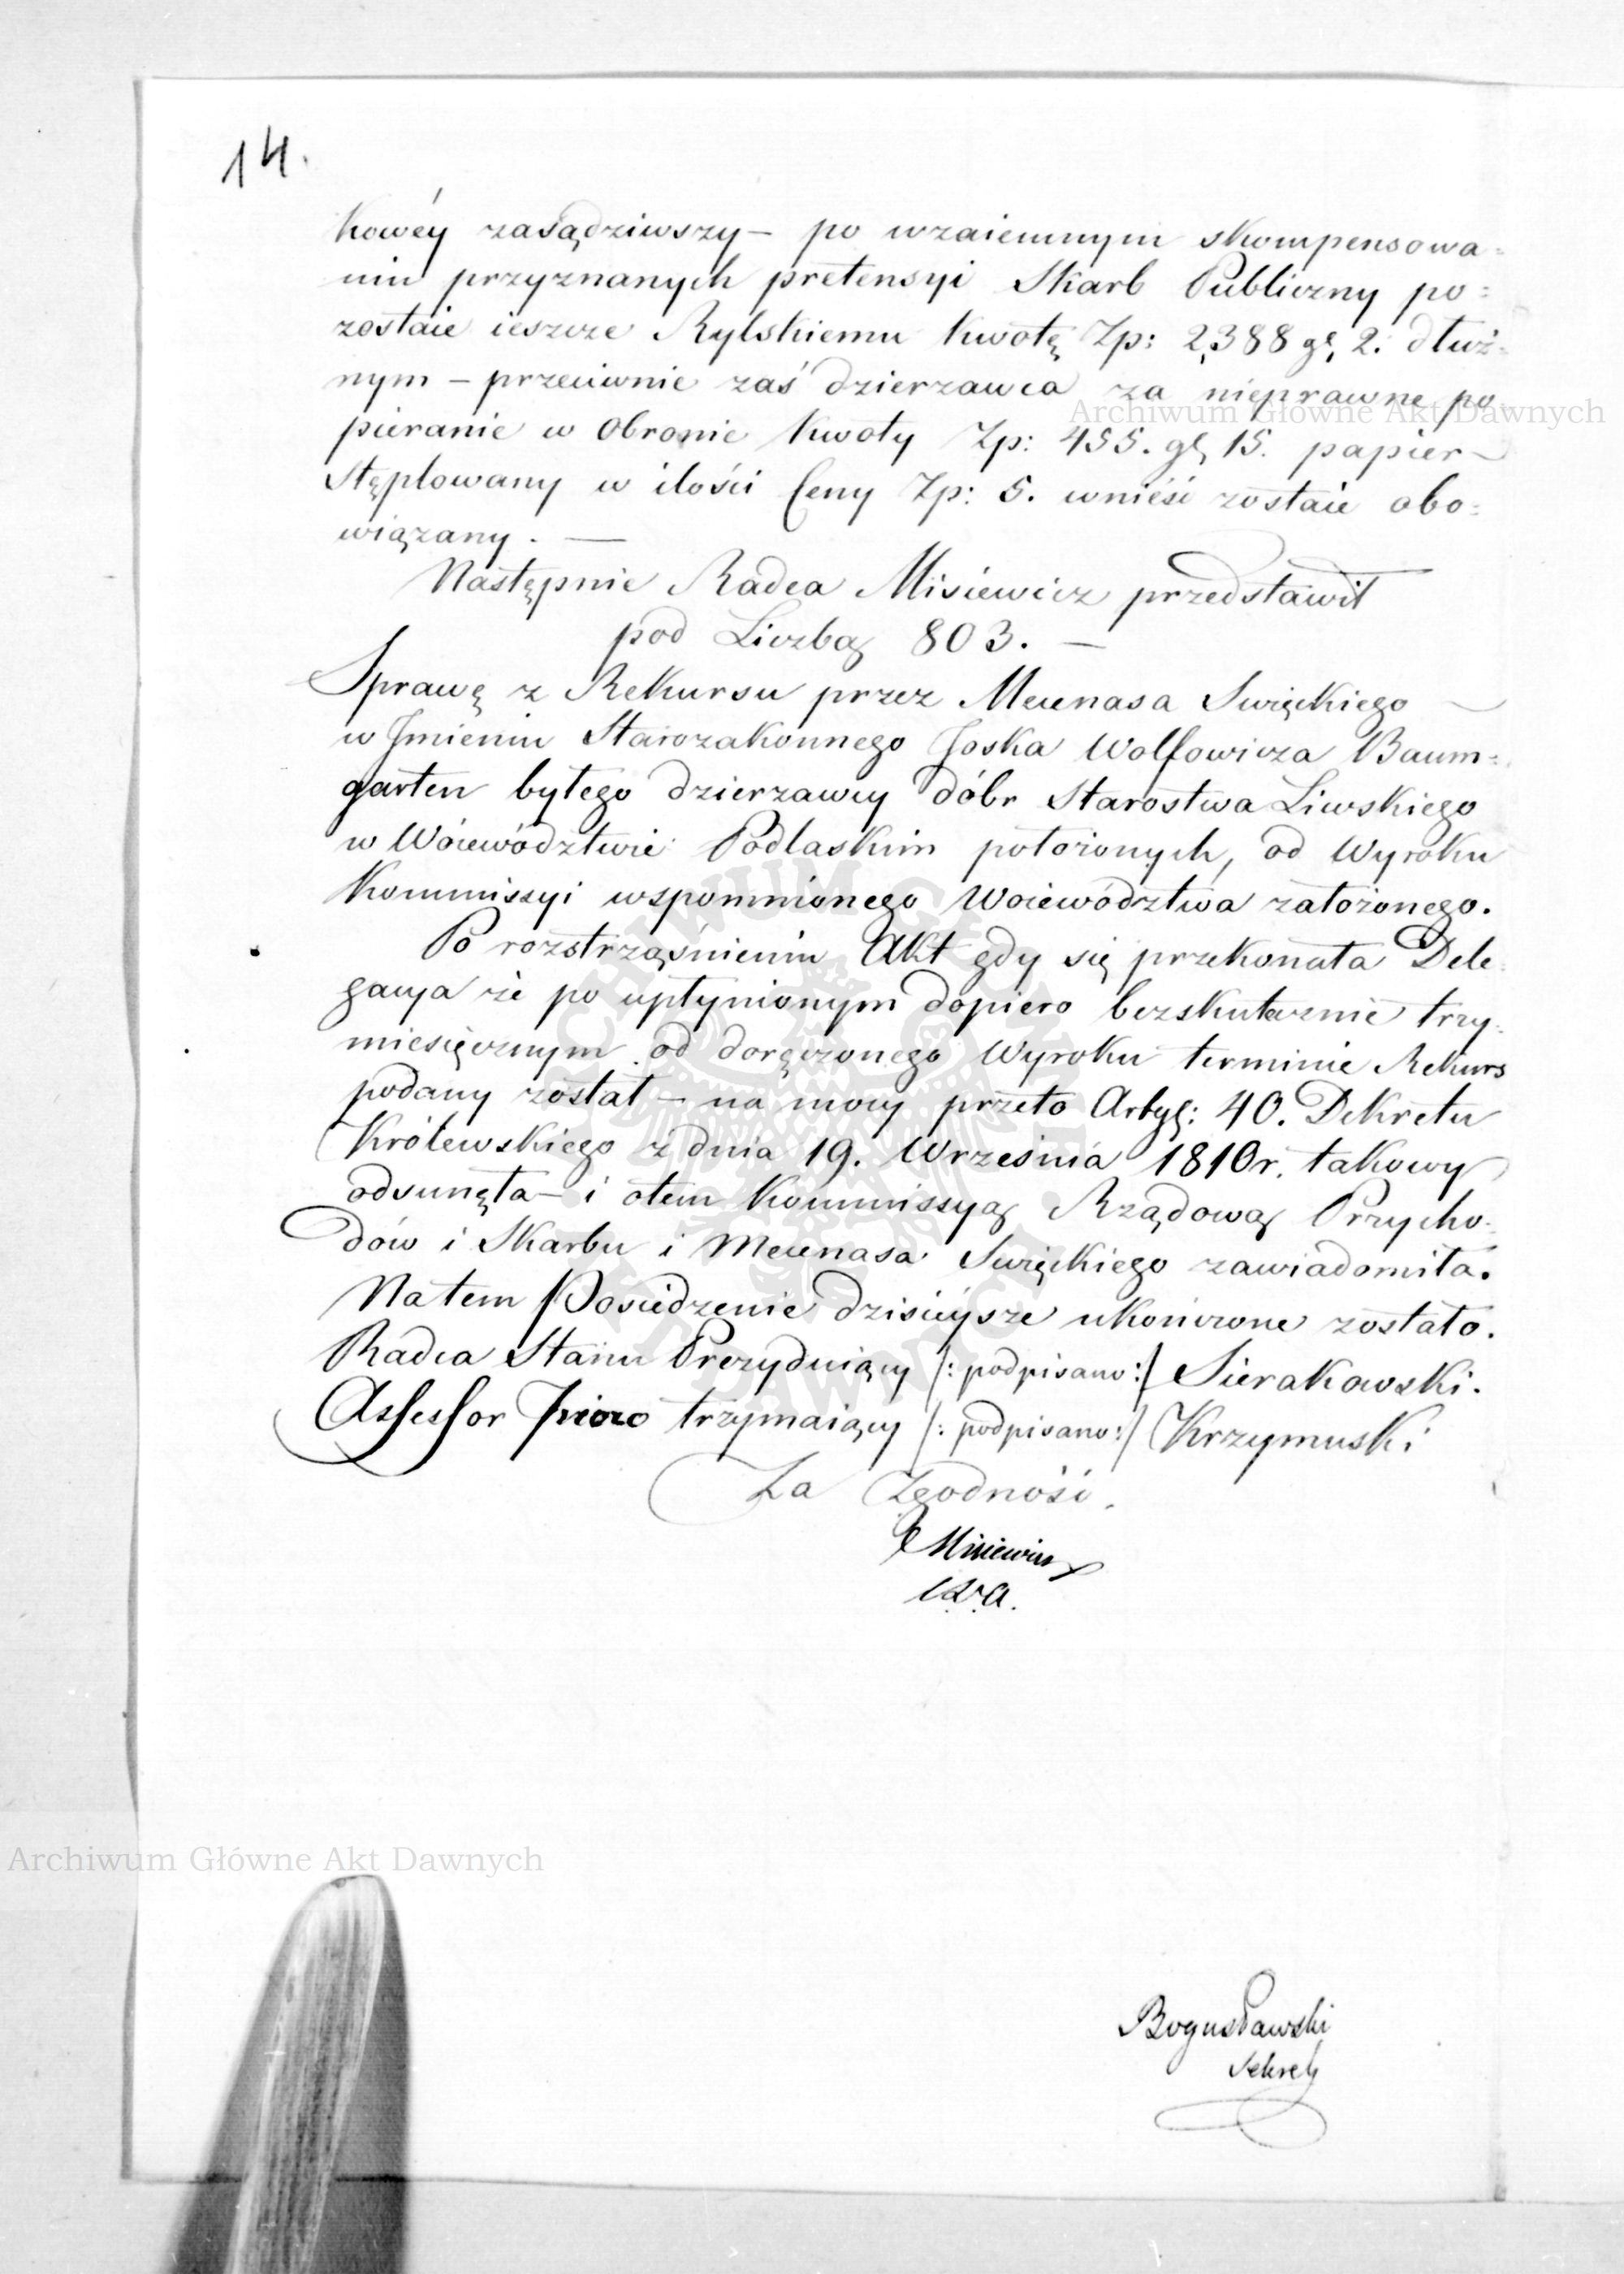 14.
kowéy zasądziwszy – po wzaiemnym skompensowa=
niu przyznanych pretensyi Skarb Publiczny po=
zostaie ieszcze Rylskiemu kwotę Zp: 2,388 gr, 2. dłuż=
nym – przeciwnie zaś dzierzawca za nieprawne po
Archiwum Główne Akt Dawnych
pieranie w Obronie kwoty Zp: 455. gr, 15. papier –
Stęplowany w ilości Ceny Zp: 5. wnieśi zostaie obo=
wiązany. —
Następnie Radca Misiewicz przedstawił
pod Liczbą 803. —
Sprawę z Rekursu przez Mecenasa Swięckiego —
w Jmieniu Starozakonnego Joska Wolfowicza Baum=
garten byłego dzierzawcy dóbr Starostwa Liwskiego
w Wóiewództwie Podlaskim położonych, od Wyroku
Kommissyi wspomnionego Woiewództwa założonego.
Po rozstrząśnieniu Akt gdy się przekonała Dele=
gacya że po upłynionym dopiero bezskutecznie trzy=
miesięcznym od doręczonego Wyroku terminie Rekurs
podany został – na mocy przeto Artyg: 40. Dekretu
Królewskiego z dnia 19. Września 1810 r. takowy
odsunęła – i otem Kommissyą Rządową Przycho=
dów i Skarbu i Mecenasa Swięckiego zawiadomiła.
Na tem Posiedzenie dzisieysze ukończone zostało.
Radca Stanu Prezyduiący /: podpisano :/ Sierakowski.
Assessor Pióro trzymaiący /: podpisano :/ Krzymuski
Za Zgodność.
Misiewicz
Archiwum Główne Akt Dawnych
Bogusławski
Sekret